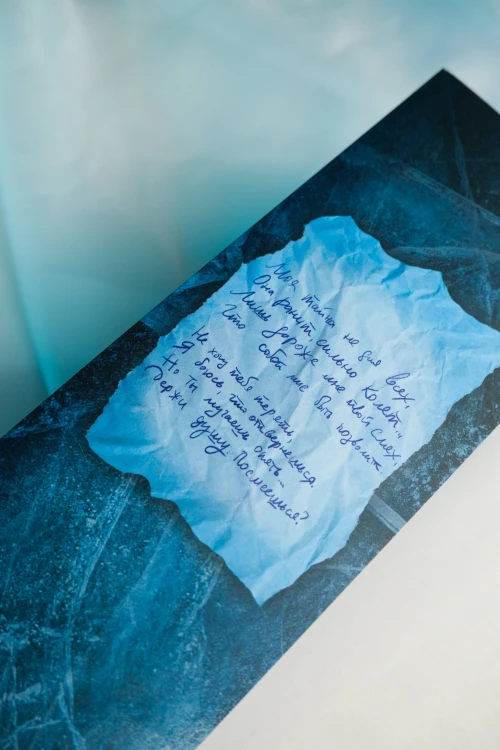 Моя тайна не для всех,
Она ранит сильно колет,,
Лишь дороже мне твой смех,
Что собой мне быть позволит
Не хочу тебя терять,
Я боюсь, что отвернешься.
Но ты мучаешь опять...
Держи душу. Посмеешься?